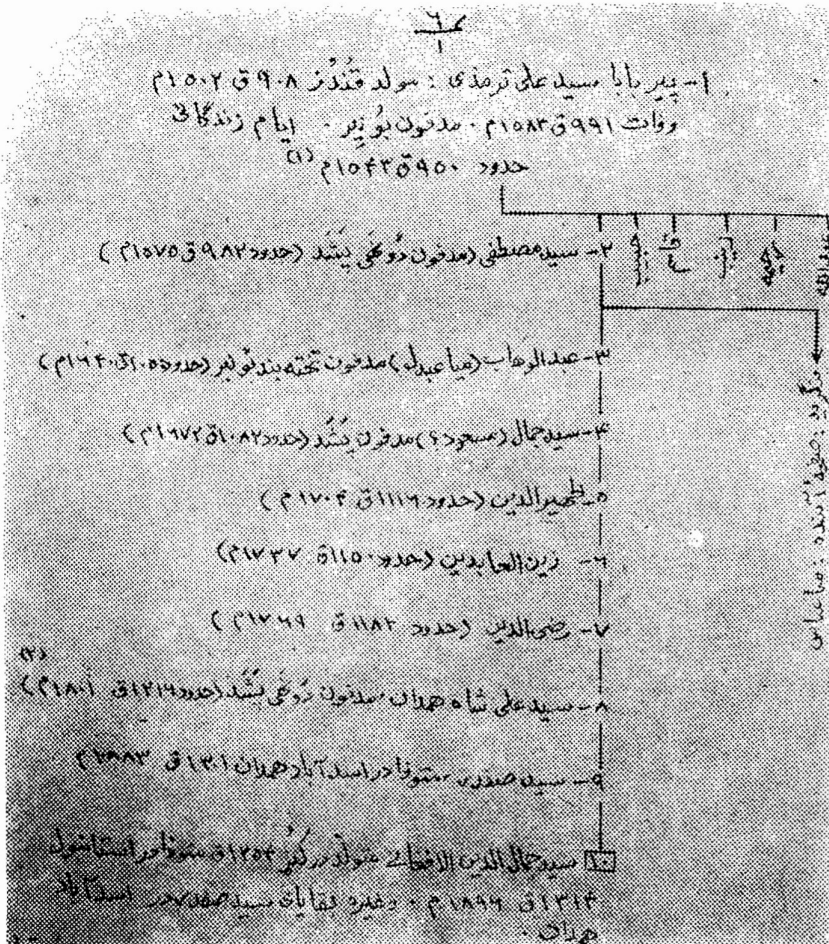 ۱- پیر بابا سید علی ترمذی : مولد قُندُز ۹۰۸ ق ۱۵۰۲م
وفات ۹۹۱ ق ۱۵۸۳م . مدفون بُونِیر . ایام زندگانی
حدود ۹۵۰ ق ۱۵۴۳م (۱)
عبدالله
۲- سید مصطفی (مدفون دُوغَی پَشَد (حدود ۹۸۲ ق ۱۵۷۵م)
۳- عبدالوهاب (میا عبدل) مدفون تخته بند بُونیر (حدود ۱۰۵۰ق ۱۶۴۰م)
۴- سید جمال (مسعود ؟) مدفون پَشَد (حدود ۱۰۸۲ق ۱۶۷۲م)
۵- ظهیرالدین (حدود ۱۱۱۶ق ۱۷۰۴م)
۶- زین العابدین (حدود ۱۱۵۰ق ۱۷۳۷م)
۷- رضی الدین (حدود ۱۱۸۲ ق ۱۷۶۹م)
۸- سید علی شاه همدان . مدفون دُوغَی پَشَد (حدود ۱۲۱۶ق ۱۸۰۱م) (۲)
۹- سید صفدر . متوفا در اسدآباد همدان ۱۳۰۱ ق ۱۸۸۳م
۱۰ سید جمال الدین الافغانی متولد در کُنَر ۱۲۵۴ق متوفا در استانبول
۱۳۱۴ق ۱۸۹۶م . وغیره بقایای سید صفدر در اسدآباد
همدان .
نگرید : صفحهٔ آینده :